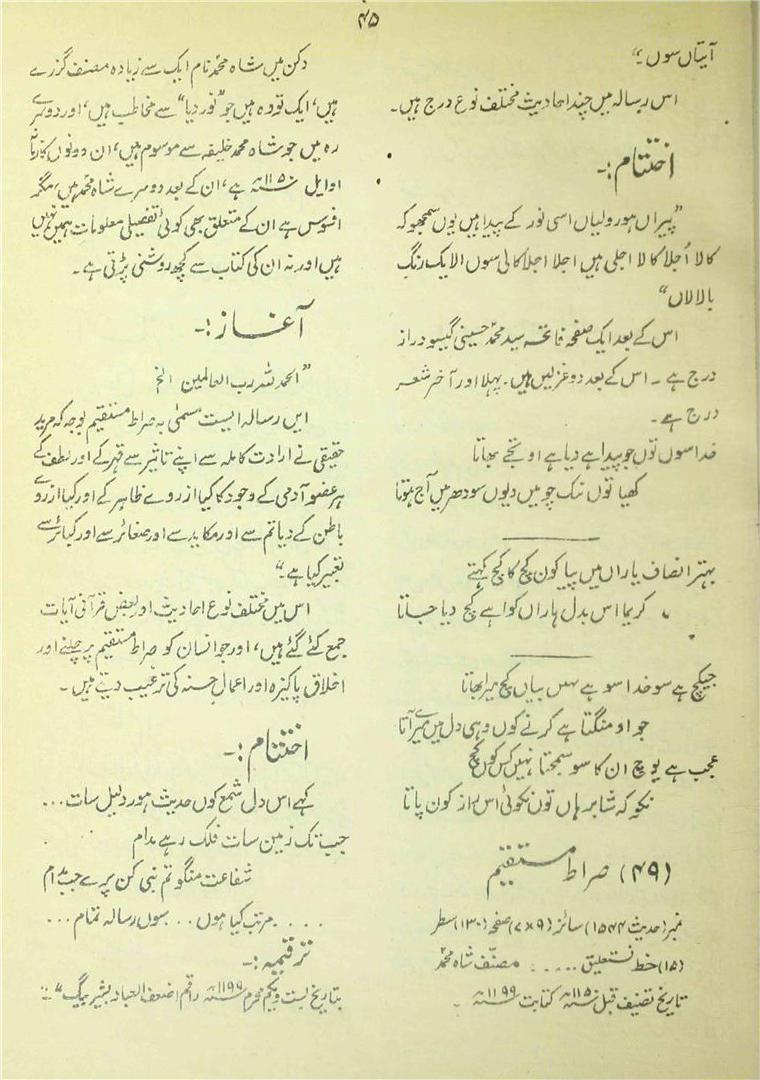 ۴۵
آیتاں سوں۔“
اس رسالہ میں چند احادیث مختلف نوع درج ہیں۔
اختتام :۔
”پیراں ہور ولیاں اسی نور کے پیدا ہیں یوں سمجھو کہ
کالا اُجلا کالا اجلی ہیں اجلا اجلا کالی سوں الا یک رنگ
بالالاں“
اس کے بعد ایک صفحہ فاتحہ سید محمد حسینی گیسو دراز
درج ہے ۔ اس کے بعد دو غزلیں ہیں۔ پہلا اور آخر شعر
درج ہے۔
خدا سوں توں جو پیدا ہے دیا ہے او تجے بھاتا
کھیا توں نک جو میں دیوں سو دھر میں آج ہوتا
بہتر انصاف یاراں میں پیا کون کچ کا کچ کہتے
کریما اس بدل ہاراں کو اے کچ دیا جاتا
جیکچ ہے سو خدا سو ہے نہیں بیاں کچ میرا بھاتا
جو او منگتا ہے کرنے کوں وہی دل میں میرے آتا
عجب ہے یو چ ان کا سو سمجتا نہیں کس کوں کچ
نکہ کہ شابرہاں توں نکوئی اس راز کون پاتا
(۴۹) صراط مستقیم
نمبر (حدیث ۱۵۴۴) سائز (۹×۷) صفحہ (۱۳۰) سطر
(۱۵) خط نستعلیق ..... مصنّف شاہ محمدؐ
تاریخ تصنیف قبل ۱۱۵۰ھ کتابت ۱۱۹۹ھ ۔
دکن میں شاہ محمدؐ نام ایک سے زیادہ مصنف گزرے
ہیں، ایک تو وہ ہیں جو ”نور دیا“ سے مخاطب ہیں، اور دوسرے
وہ ہیں جو شاہ محمد خلیفہ سے موسوم ہیں، ان دونوں کا زمانہ
اوایل ۱۱۵۰ھ ہے، ان کے بعد دوسرے شاہ محمدؐ ہیں، مگر
افسوس ہے ان کے متعلق بھی کوئی تفصیلی معلومات ہمیں نہیں
ہیں اور نہ ان کی کتاب سے کچھ روشنی پڑتی ہے۔
آغاز :۔
”الحمد للہ رب العالمین الخ
ایں رسالہ ایست مسمّٰی بہ صراط مستقیم بوجہ کہ مرید
حقیقی نے ارادت کاملہ سے اپنے تاثیر سے قہر کے اور لطف کے
ہر عضو آدمی کے وجود کا کیا از روے ظاہر کے اور کیا از روے
باطن کے دیاتم سے اور مکاید سے اور صغائر سے اور کبائر سے
تعبیر کیا ہے۔“
اس میں مختلف نوع احادیث اور بعض قرآنی آیات
جمع کئے گئے ہیں، اور جو انسان کو صراط مستقیم پر چلنے اور
اخلاق پاکیزہ اور اعمال حسنہ کی ترغیب دیتے ہیں۔
اختتام :۔
کہے اس دل شمع کوں حدیث ہور دلیل سات ...
جب تک زمین سات فلک رہے مدام
شفاعت منگو تم نبی کن پرے جب مدام
.... مرتب کیا ہوں ... سوں رسالہ تمام ...
ترقیمہ :۔
بتاریخ بست و یکم محرم ۱۱۹۹ھ راقم اضعف العباد بشیر بیگ“۔